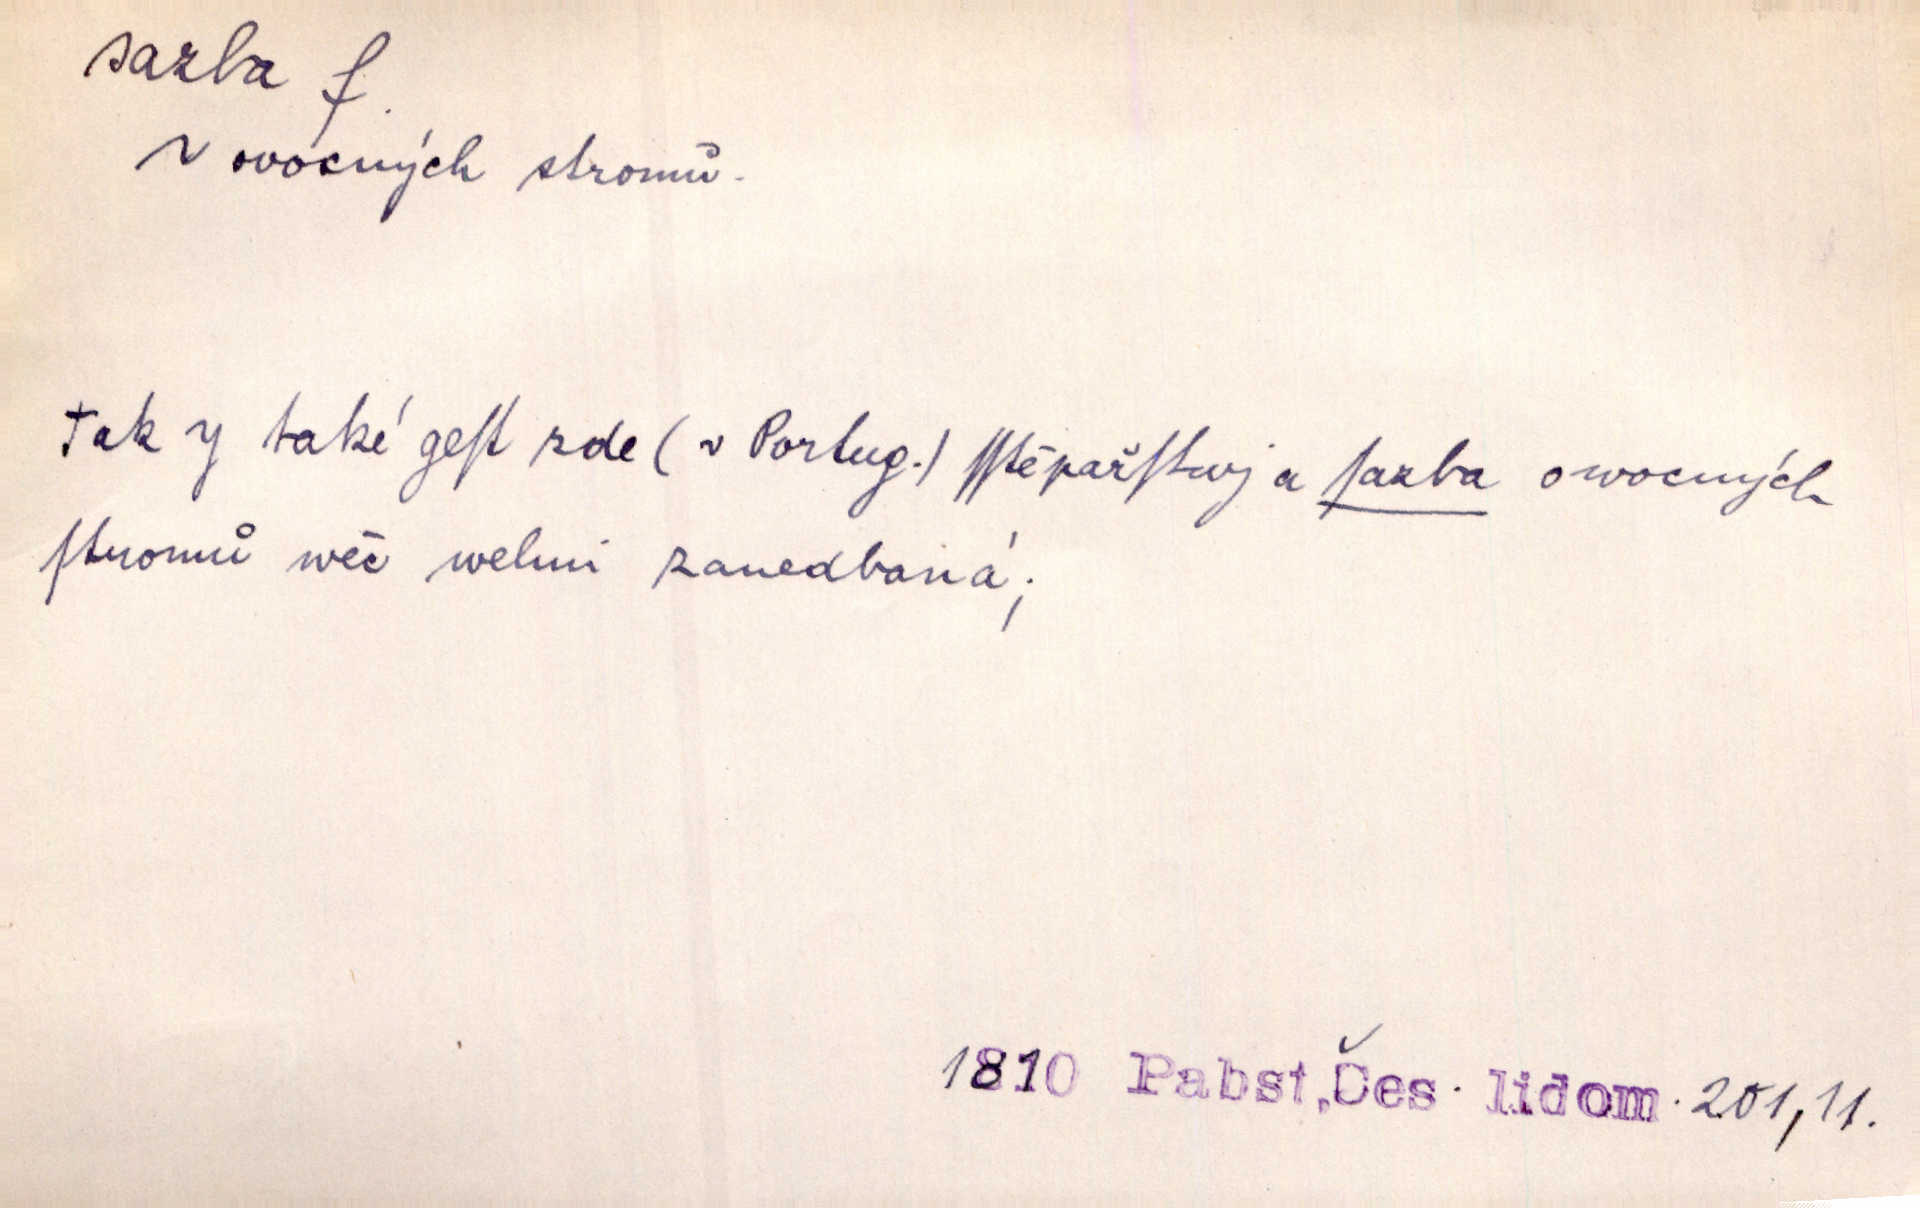 sazba f.
v ovocných stromů.
Tak y také geſt zde (v Portug.) ſſtěpařſtwj a ſazba owocných
ſtromů wěc welmi zanedbaná;
1810 Pabst, Čes. lidom. 201, 11.